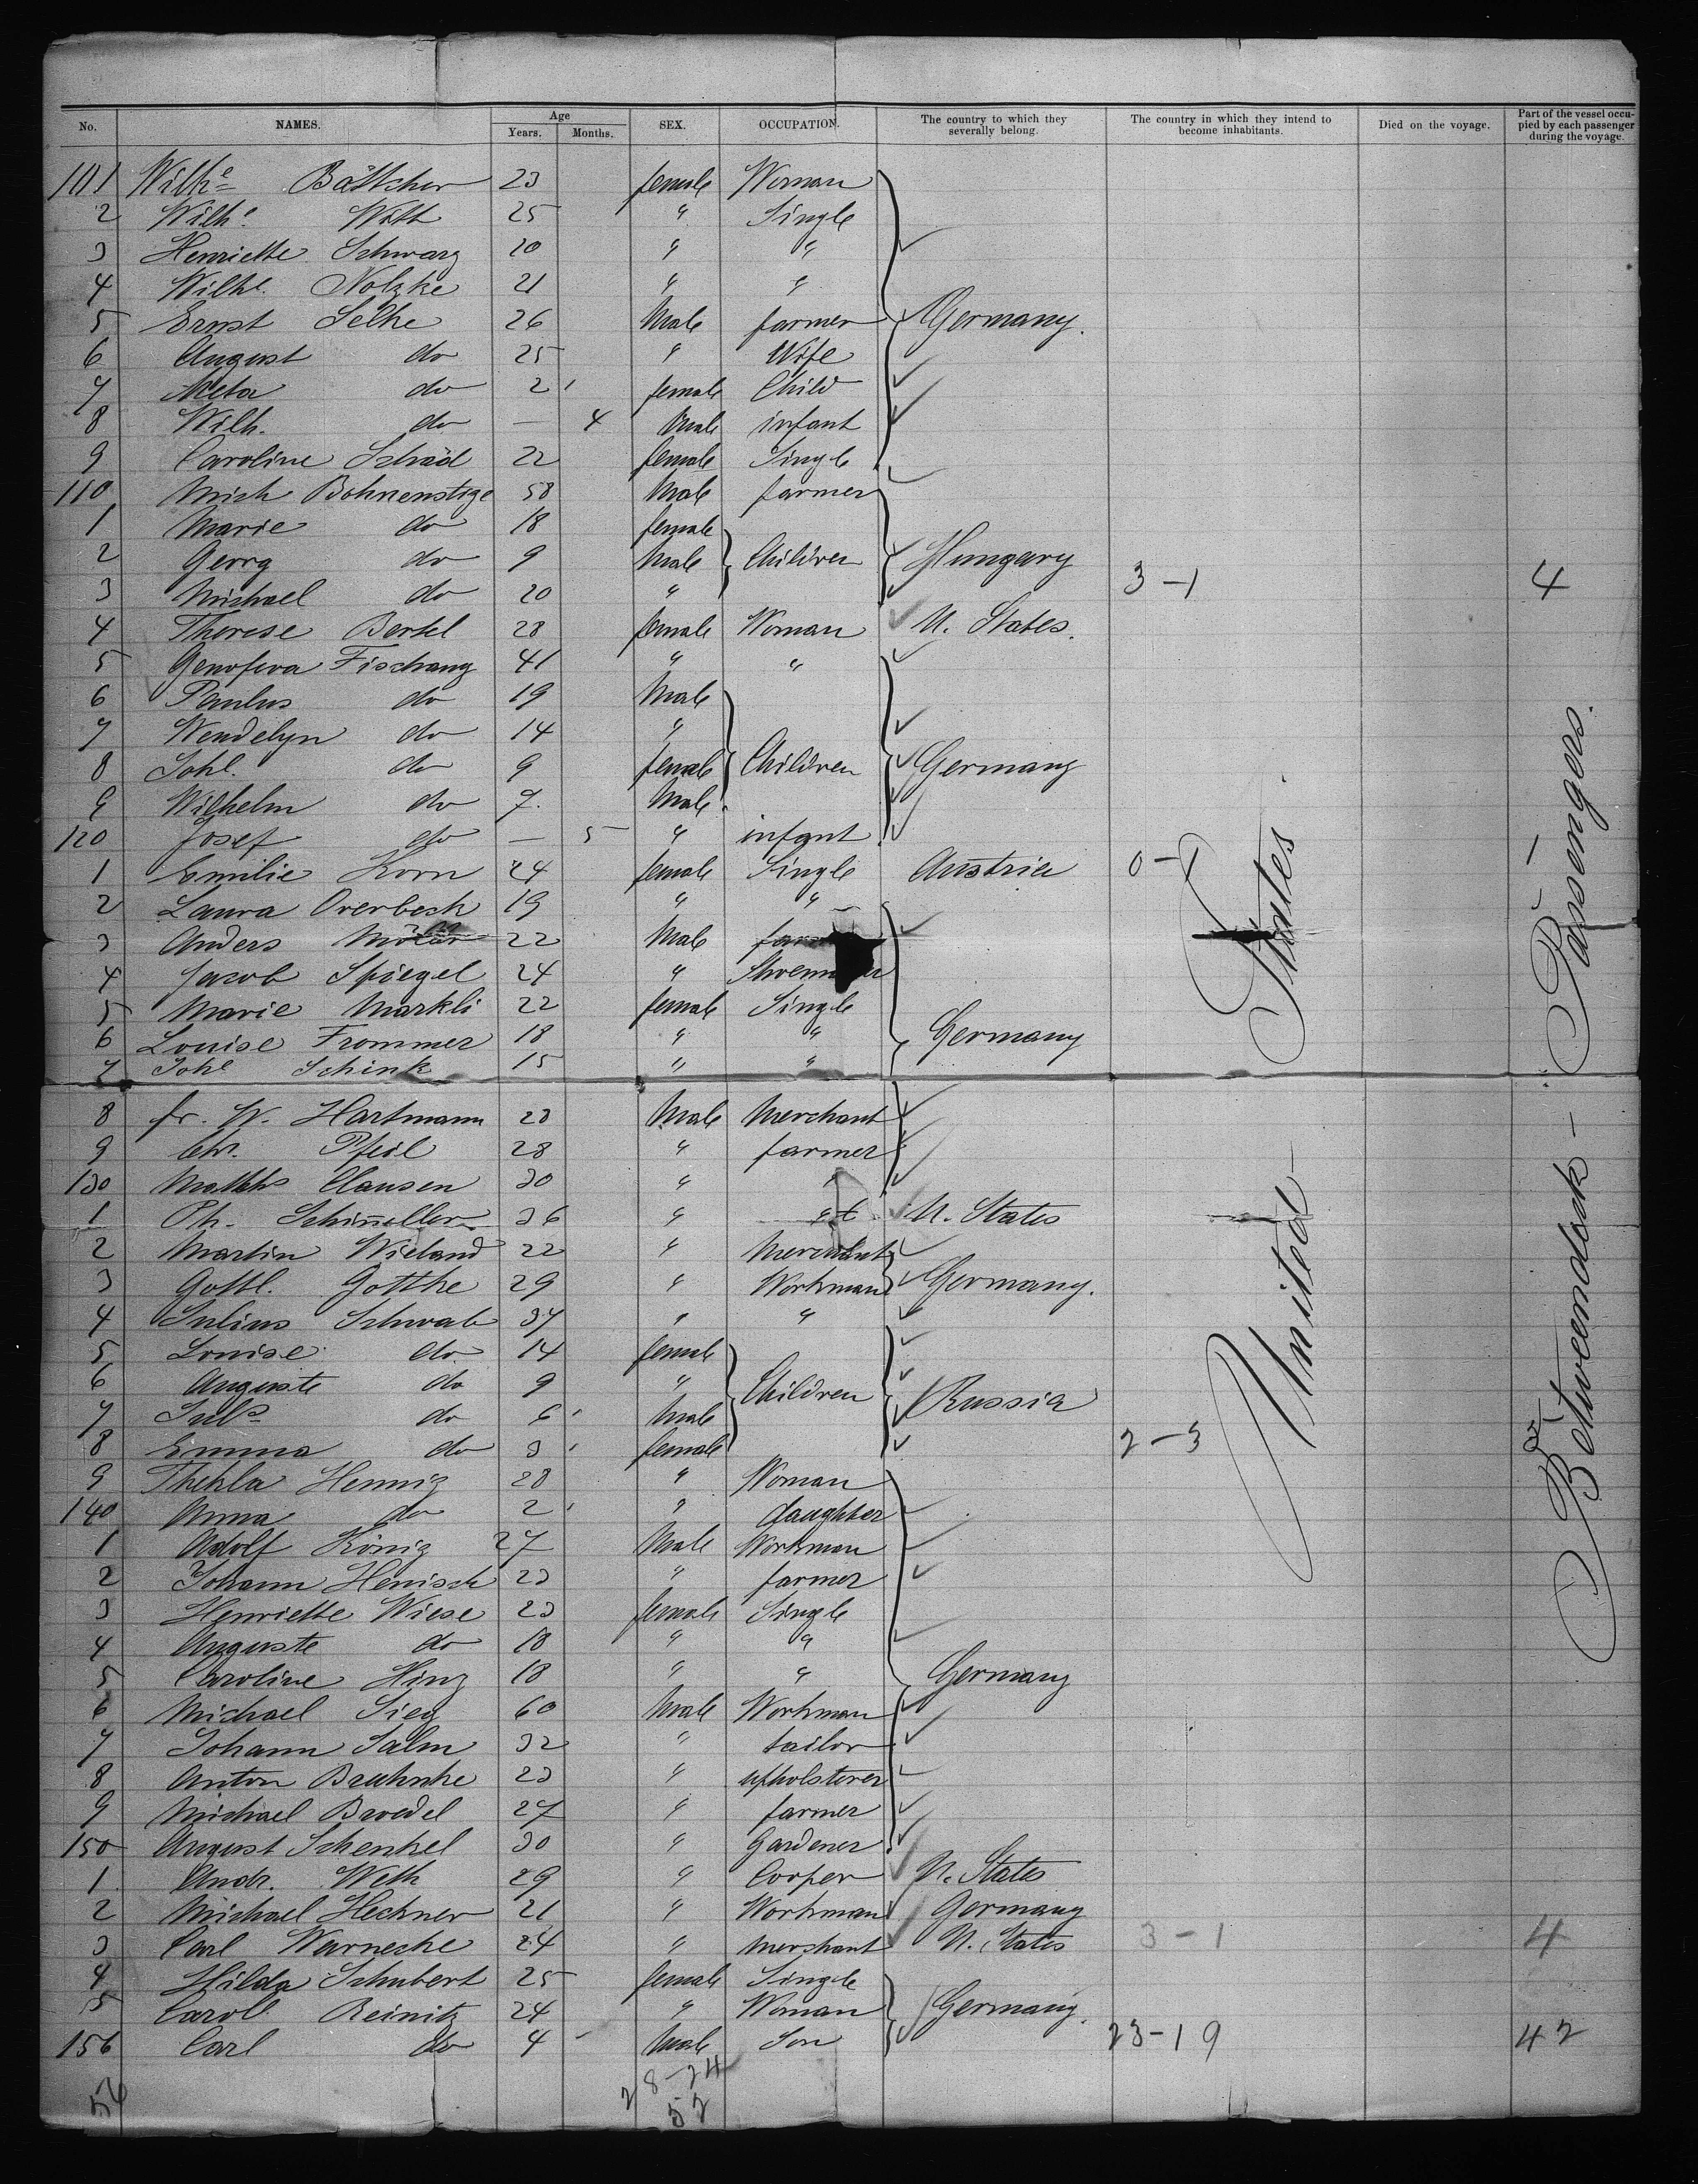 No. NAMES. Age Years. Months. SEX. OCCUPATION. The country to which they severally belong. The country in which they intend to become inhabitants. Died on the voyage. Part of the vessel occupied by each passenger during the voyage.
101 Wilhe Böttcher 23 female Woman
2 Wilhe Witt 25 " Single
3 Henriette Schwarz 20 " "
4 Wilhe. Nolzke 21 " "
5 Ernst Selke 26 Male farmer Germany.
6 August do 25 " Wife
7 Meta do 2 female Child
8 Wilh. do — 4 Male infant
9 Caroline Schäd 22 female Single
110 Mich Bohnenstige 58 Male farmer
1 Marie do 18 female
2 Georg do 9 Male Children Hungary
3 Michael do 20 " 3-1 4
4 Therese Bertel 28 female Woman U. States.
5 Genofeva Fischang 41 " "
6 Paulus do 19 Male
7 Wendelyn do 14 "
8 Johe. do 9 female Children Germany
9 Wilhelm do 7. Male
120 Josef do — 5 " infant
1 Emilie Korn 24 female Single Austria 0-1
2 Laura Overbeck 19 " "
3 Anders 22 Male
4 Jacob Spiegel 24 " Shoemaker
5 Marie Markli 22 female Single
6 Louise Frommer 18 " " Germany
7 Johe Schink 15 " "
8 fr. W. Hartmann 23 Male Merchant
9 Chr. Pfeil 28 " farmer
130 Matths Clausen 30 " "
1 Ph. Schineller 36 " " U. States
2 Martin Wieland 22 " Merchant
3 Gottl. Gotthe 29 " Workman Germany.
4 Julius Schwab 37 " "
5 Louise do 14 female
6 Auguste do 9 " Children Russia
7 Juls do 6 Male
8 Emma do 3 female 2-3
9 Thekla Hennig 28 " Woman
140 Anna do 2 " daughter
1 Adolf König 27 Male Workman
2 Johann Henisch 23 " farmer
3 Henriette Wiese 23 female Single
4 Auguste do 18 " "
5 Caroline Hinz 18 " " Germany
6 Michael Sieg 60 Male Workman
7 Johann Salm 32 " tailor
8 Anton Bruhnke 23 " upholsterer
9 Michael Broedel 27 " farmer
150 August Schenkel 30 " Gardener
1 Andr. Weth 29 " Cooper U. States
2 Michael Hechner 21 " Workman Germany
3 Carl Warnecke 24 " Merchant U. States 3-1 4
4 Hilda Schubert 25 female Single
5 Carol. Reinitz 24 " Woman Germany.
156 Carl do 4 Male Son 23-19 42
56 28-24
52
United States
Betweendeck - Passengers.